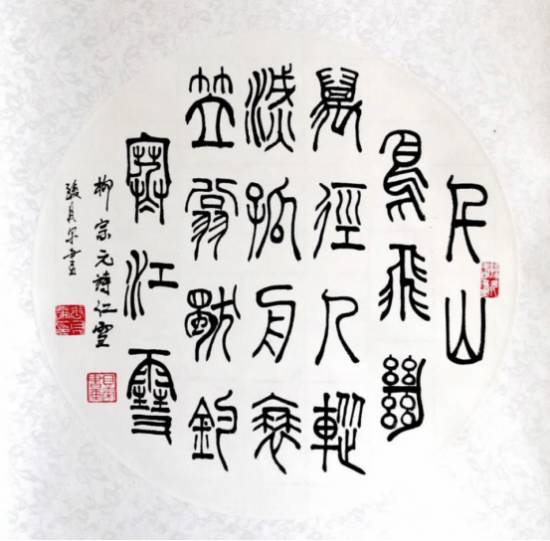 千山
鳥飛絕
萬徑人蹤
滅孤舟蓑
笠翁獨釣
寒江雪
柳宗元詩江雪
張書